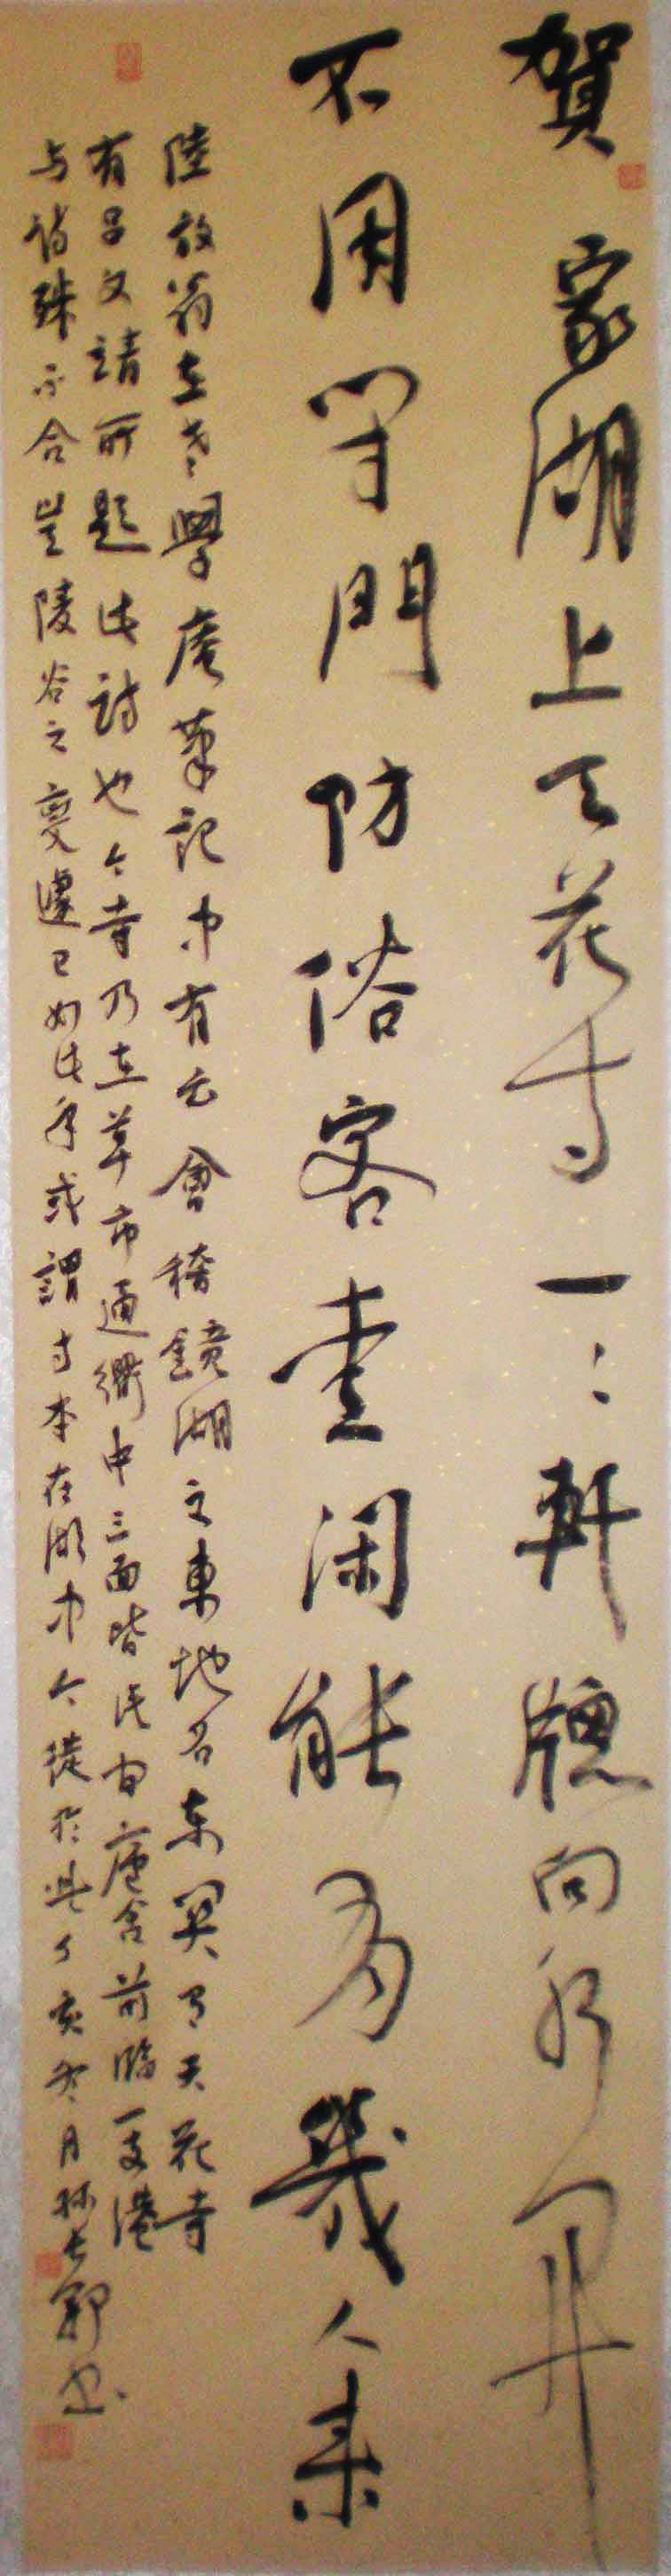 賀家湖上天花寺一〻軒牕向水開
不用閉門防俗客愛闲能有幾人来
陸放翁在老學庵筆記中有云會稽鏡湖之東地名东関有天花寺
有吕文靖所題此詩也今寺乃在草市通衢中三面皆民间庐舍前临一支港
与诗殊不合豈陵谷之變遷已如此乎或謂寺本在湖中今徙於此丁亥冬月 書